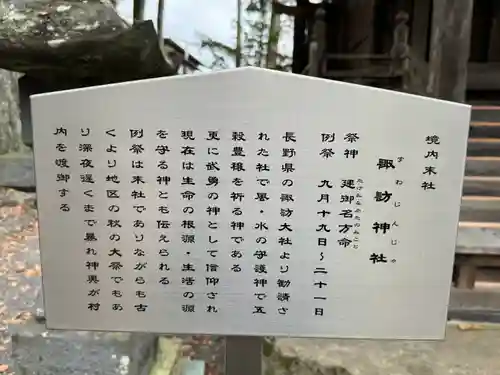 境内末社
諏訪神社
すわじんじゃ
祭神　建御名方命
たけみなかたのみこと
例祭　九月十九日～二十一日
長野県の諏訪大社より勧請さ
れた社で風・水の守護神で五
穀豊穣を祈る神である
更に武勇の神として信仰され
現在は生命の根源・生活の源
を守る神とも伝えられる
例祭は末社でありながらも古
くより地区の秋の大祭でもあ
り深夜遅くまで暴れ神輿が村
内を渡御する